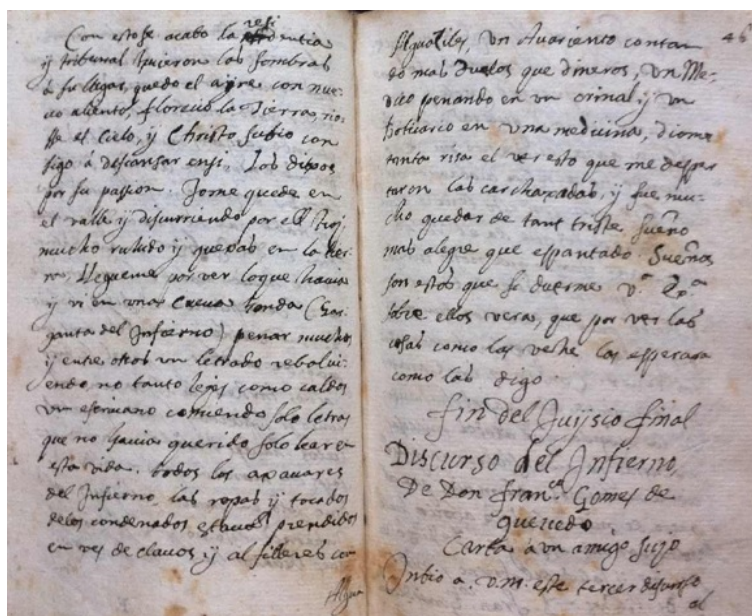 Con esto se acabo la residentia
y tribunal huieron las sombras
à su lugar, quedo el ayre con nue-
uo aliento, florecio la Tierra, rio-
sse el Cielo, y Christo subio con
sigo à descansar en si. Los dichosos
por su passion. Jo me quede en
el valle y discurriendo por el Oy
mucho ruhido y quexas en la tier
ra. Llegueme por ver lo que hauia
y vi en vna Cueua honda (Gar-
ganta del Infierno) penar muchos
y entre otros vn letrado rebolui-
endo no tanto leyes como caldos
vn escriuano comiendo solo letras
que no hauia querido solo leer en
esta vida. todos los axuares
del Infierno, las ropas y tocados
de los condenados estauan prendidos
en ves de clauos y alfileres con
Algua
46
Alguaciles, Vn Auariento contan
do mas duelos que dineros, Vn Me-
dico penando en vn orinal, y vn
Boticario en vna medicina, diome
tanta risa el ver esto que me desper
taron las carchaxadas, y fue mu-
cho quedar de tant triste sueño
mas alegre que espantado. Sueños
son estos que se duerme V.ª Ex.ª
sobre ellos vera, que por ver las
cosas como las veshe las esperara
como las digo.
fin del Juysio final
Discurso del Infierno
De Don Fran.co Gomes de
Queuedo
Carta à vn amigo suyo
Inbio a. V.m. este tercer discurso
al